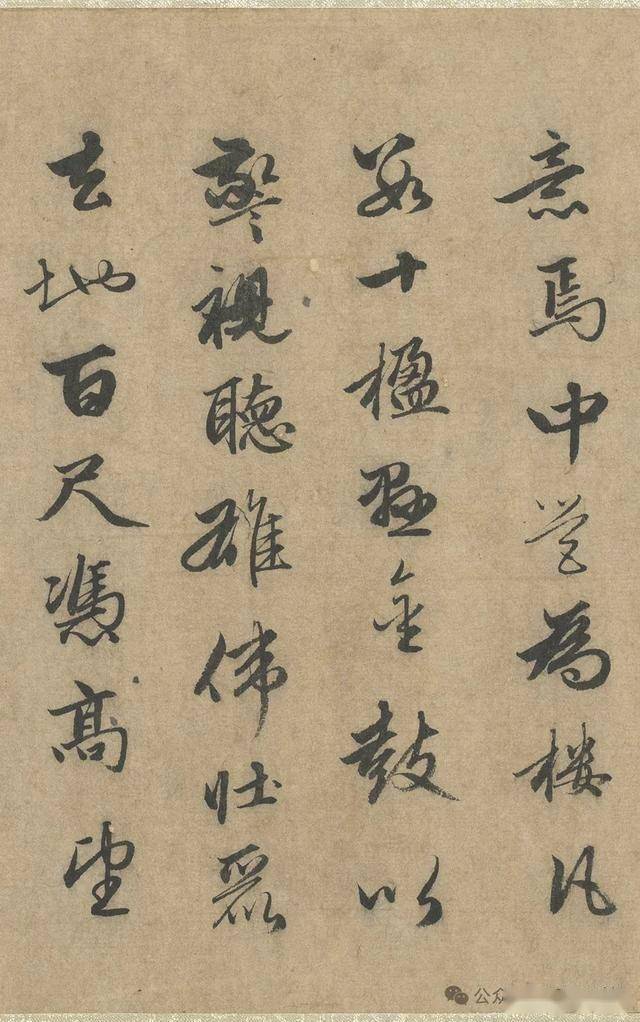 意焉中營為樓凡
數十楹懸金鼓以
警視聽雄偉壯麗
去地百尺憑高望
公众